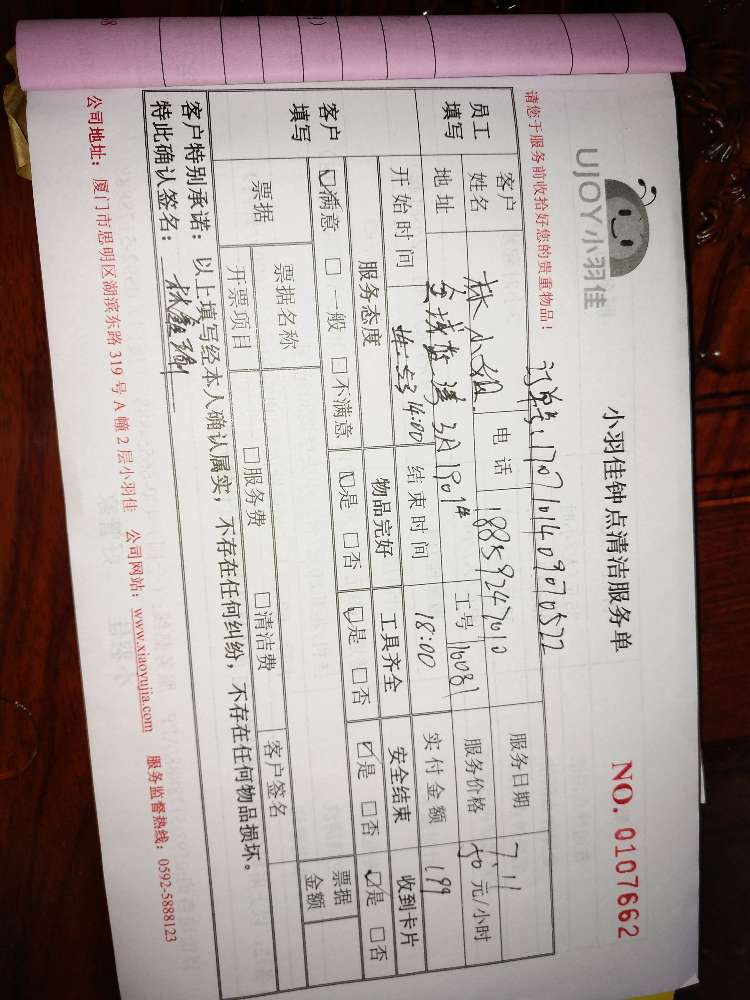 UJOY小羽佳
小羽佳钟点清洁服务单
NO. 0107662
请您于服务前收拾好您的贵重物品！
订单号：1707101409070522
员工填写
客户姓名 林小姐 电话 18859247010 服务日期 7.11
地址 3A1901# 工号 16081 服务价格 50 元/小时
开始时间 14:00 结束时间 18:00 实付金额 199
客户填写
服务态度 物品完好 工具齐全 安全结束 收到卡片
☑满意 □一般 □不满意 ☑是 □否 ☑是 □否 ☑是 □否 ☑是 □否
票据 票据名称 客户签名 票据金额
开票项目 □服务费 □清洁费
客户特别承诺：以上填写经本人确认属实，不存在任何纠纷，不存在任何物品损坏。
特此确认签名：
公司地址：厦门市思明区湖滨东路 319 号 A 幢 2 层小羽佳 公司网站：www.xiaoyujia.com 服务监督热线：0592-5888123